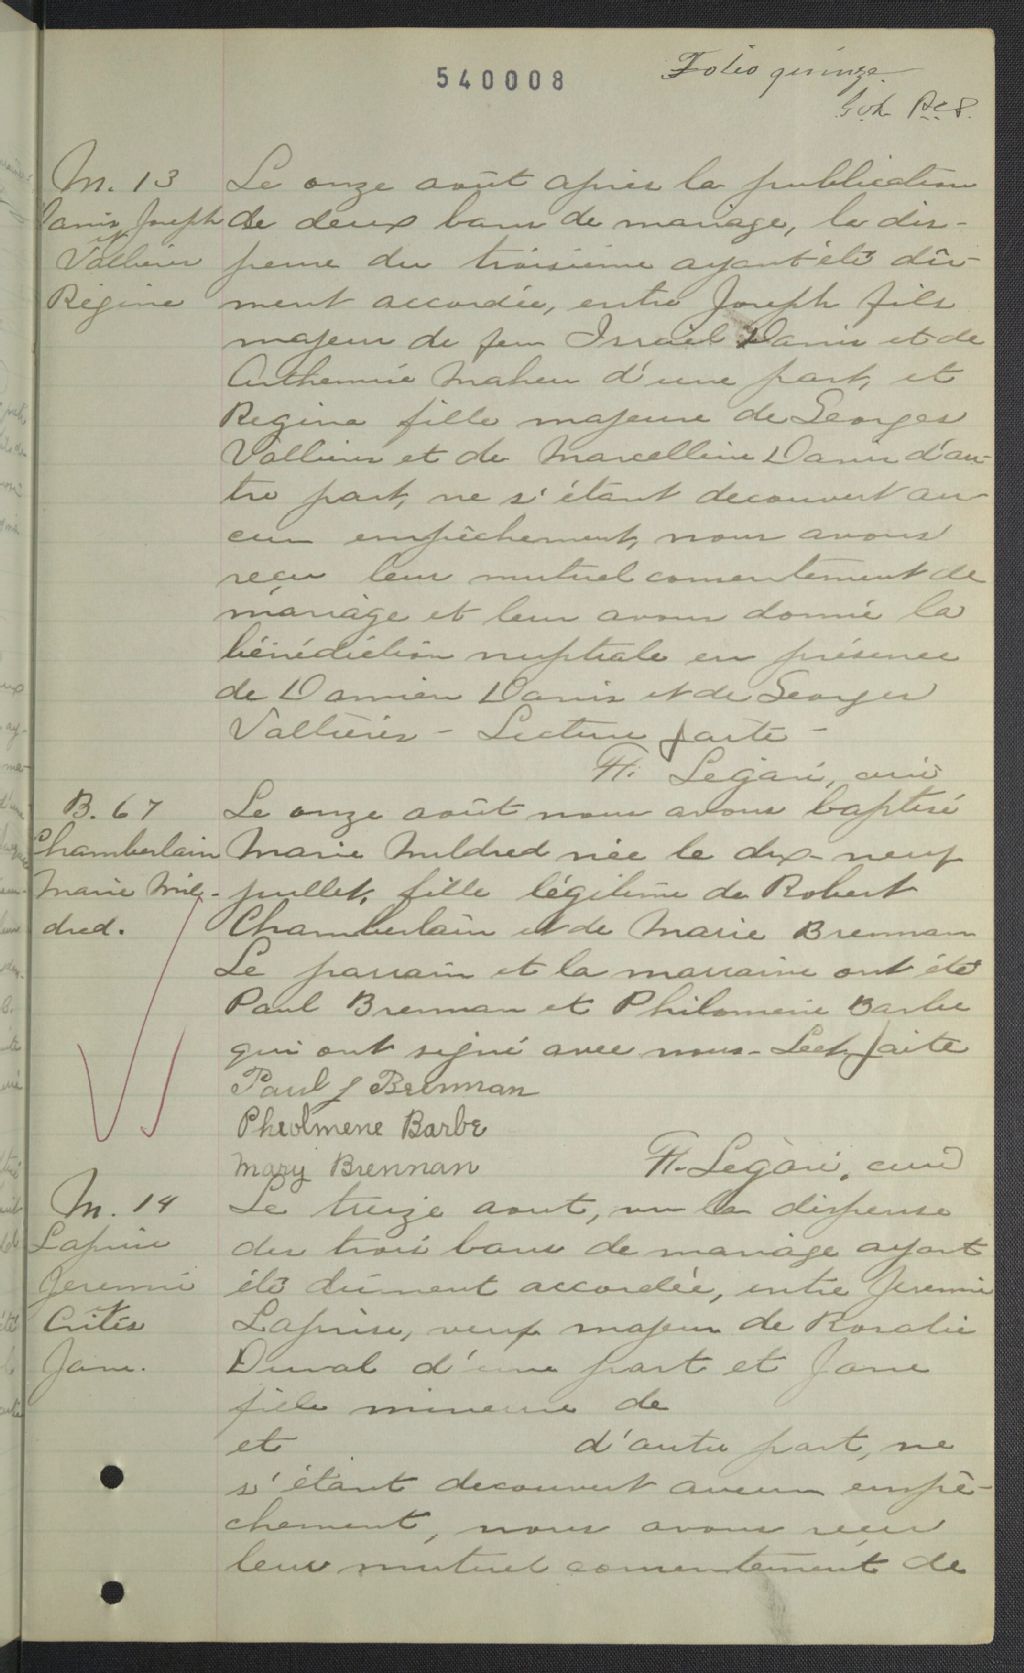 540008
Folio quinze
M. 13
Danis Joseph
&
Vallières
Régine
Le onze août après la publication
de deux bans de mariage, la dis-
pense du troisième ayant été dû-
ment accordée, entre Joseph fils
majeur de feu Israël Danis et de
Arthemise Maheu d'une part, et
Regina fille majeure de Georges
Vallières et de Marcelline Danis d'au-
tre part, ne s'étant decouvert au-
cun empêchement, nous avons
reçu leur mutuel consentement de
mariage et leur avons donné la
bénédiction nuptiale en présence
de Damien Danis et de Georges
Vallières - Lecture faite -
H. Legaré, curé
B. 67
Chamberlain
Marie Mil-
dred.
Le onze août nous avons baptisé
Marie Mildred née le dix-neuf
juillet, fille légitime de Robert
Chamberlain et de Marie Brennan
Le parrain et la marraine ont été
Paul Brennan et Philomene Barbe
qui ont signé avec nous - Lect. faite
Paul J Brennan
Pheolmene Barbe
Mary Brennan
H. Legaré, curé
M. 14
Laprise
Jeremi
&
Crites
Jane.
Le treize aout, vu la dispense
des trois bans de mariage ayant
été dûment accordée, entre Jeremie
Laprise, veuf majeur de Rosalie
Duval d'une part et Jane
fille mineure de
et d'autre part, ne
s'étant decouvert aucun empê-
chement, nous avons reçu
leur mutuel consentement de